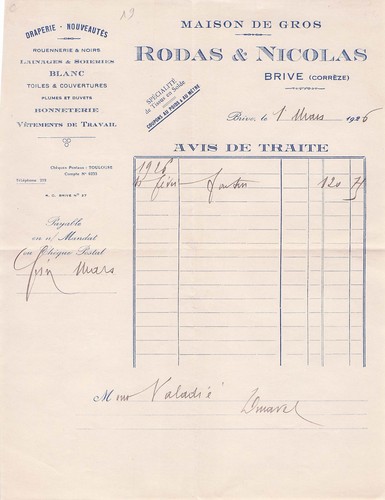 19
DRAPERIE - NOUVEAUTÉS
ROUENNERIE & NOIRS
LAINAGES & SOIERIES
BLANC
TOILES & COUVERTURES
PLUMES ET DUVETS
BONNETERIE
VÊTEMENTS DE TRAVAIL
Chèques Postaux : TOULOUSE
Compte N° 8293
Téléphone
R. C. BRIVE N° 57
Payable
ou n/ Mandat
ou Chèque Postal
fin Mars
MAISON DE GROS
RODAS & NICOLAS
BRIVE (CORRÈZE)
SPÉCIALITÉ
de Tissus en Solde
COUPONS AU POIDS & AU MÈTRE
Brive, le 1 Mars 1926
AVIS DE TRAITE
1926
févr facture 120 75
M Valadié